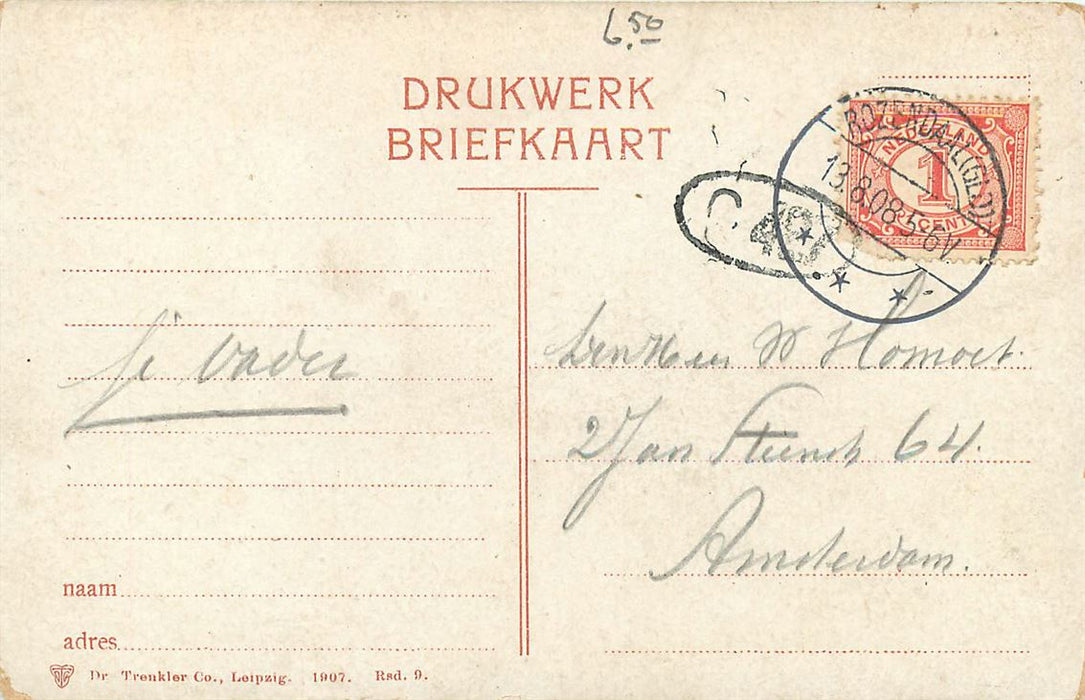 6.50
DRUKWERK
BRIEFKAART
NEDERLAND
1
CENT
ROZENDAAL(GLD)
13.8.08.5-6V
je vader
W Homoet.
2 Jan Steenstr 64.
Amsterdam.
naam
adres
Dr Trenkler Co., Leipzig. 1907. Rsd. 9.